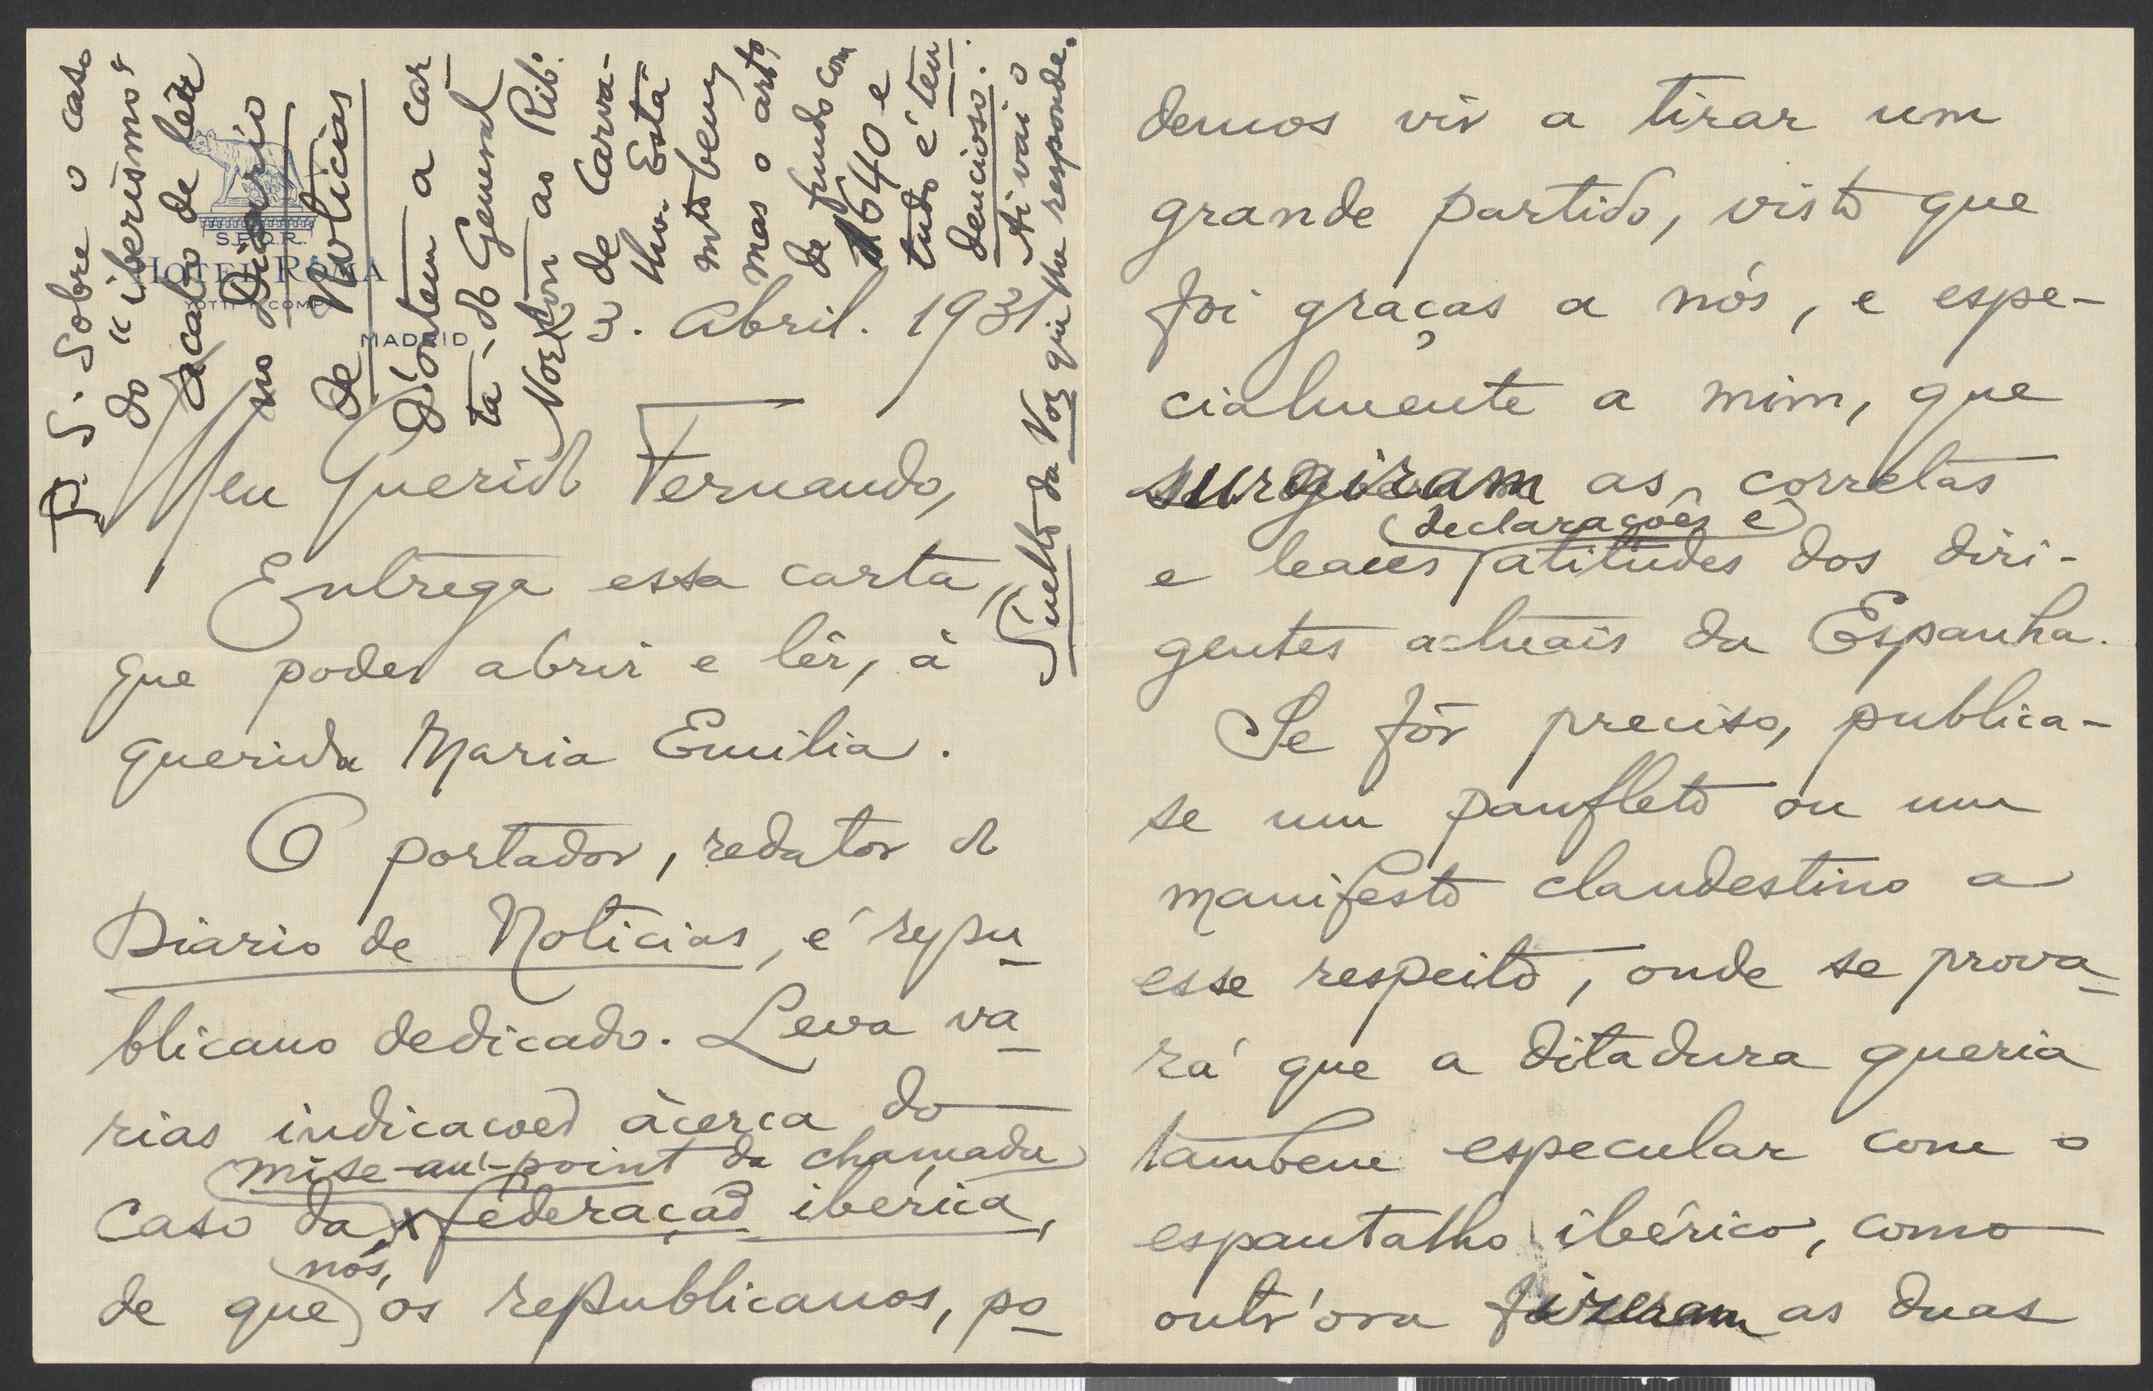 S.P.Q.R.
HOTEL ROMA
MADRID
3. Abril. 1931
Meu Querido Fernando,
Entrega essa carta,
que podes abrir e lêr, á
querida Maria Emilia.
O portador, redator do
Diario de Noticias, é repu-
blicano dedicado. Leva va-
rias indicacoes àcerca do
mise-au-point da chamada
caso da x federação ibérica,
nós,
de que os republicanos, po-
P. S. Sobre o caso
do "iberismo"
acabo de lêr
no Diario
de Noticias
d'ontem a car-
ta do General
Norton ao Rib.
de Carva-
lho. Está
mto bem,
mas o arto
de fundo com
1640 e
tudo é ten-
dencioso.
Ai vai o
Suelto da Voz que lhe responde.
demos vir a tirar um
grande partido, visto que
foi graças a nós, e espe-
cialmente a mim, que
surgiram as corretas
declarações e
e leaes atitudes dos diri-
gentes actuais da Espanha.
Se fôr preciso, publica-
se um panfleto ou um
manifesto clandestino a
esse respeito, onde se prova-
rá que a ditadura queria
tambem especular com o
espantalho ibérico, como
outr'ora fizeram as duas